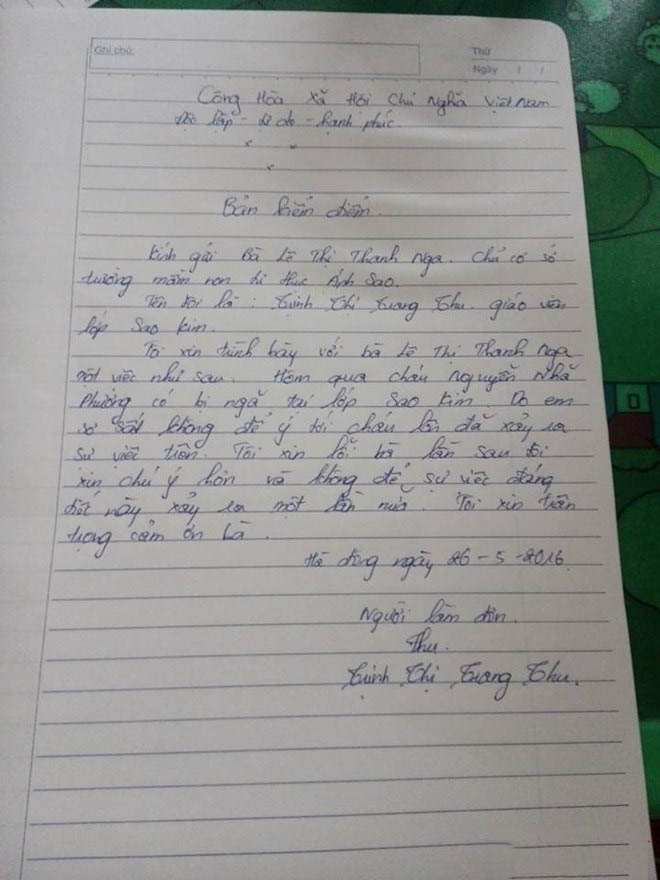 Ghi chú:
Thứ
Ngày / /
Cộng Hòa Xã Hội Chủ Nghĩa Việt Nam
Độc lập - tự do - hạnh phúc.
Bản kiểm điểm.
Kính gửi Bà Lê Thị Thanh Nga. Chủ cơ sở
trường mầm non tư thục Ánh Sao.
Tên tôi là : Trịnh Thị Trang Thu. giáo viên
lớp Sao Kim.
Tôi xin trình bày với bà Lê Thị Thanh Nga
một việc như sau. Hôm qua cháu Nguyễn Nhã
Phương có bị ngã tại lớp Sao Kim. Do em
sơ suất không để ý tới cháu lên đã xảy ra
sự việc trên. Tôi xin lỗi bà lần sau tôi
xin chú ý hơn và không để sự việc đáng
tiếc này xảy ra một lần nữa. Tôi xin trân
trọng cảm ơn bà.
Hà đông ngày 26-5-2016.
Người làm đơn.
Thu.
Trịnh Thị Trang Thu.